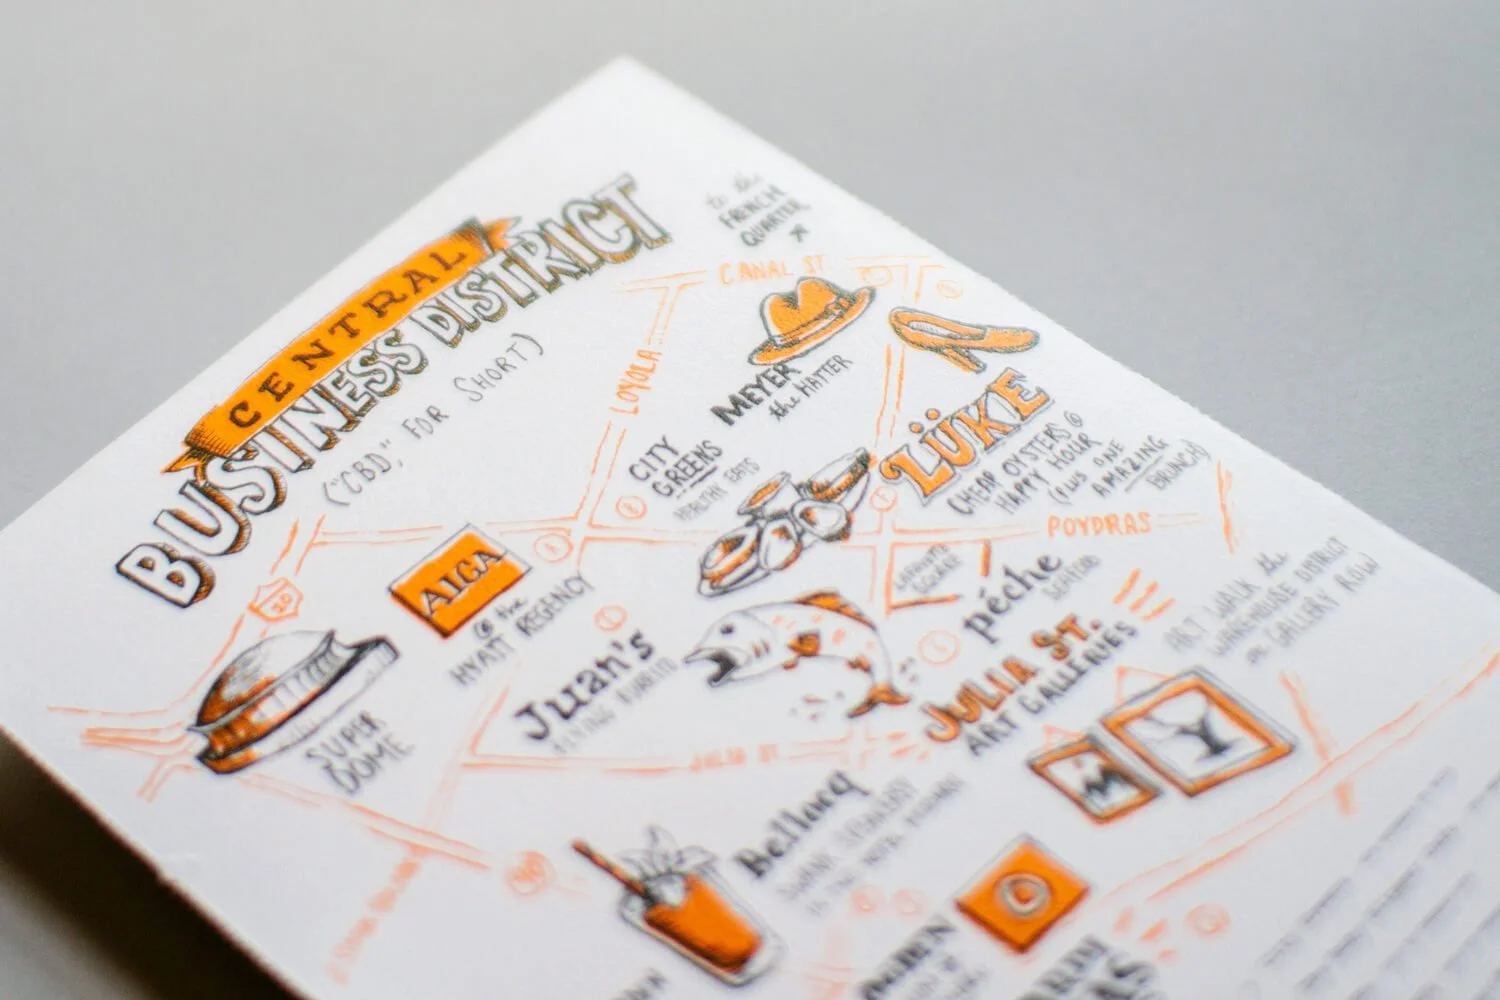 CENTRAL
BUSINESS DISTRICT
("CBD," FOR SHORT)
to the
FRENCH
QUARTER
CANAL ST
LOYOLA
MEYER
the HATTER
LÜKE
CHEAP OYSTERS @
HAPPY HOUR
(PLUS ONE
AMAZING
BRUNCH)
CITY
GREENS
HEALTHY EATS
POYDRAS
10
AIGA
@ the
HYATT REGENCY
LAFAYETTE
SQUARE
péche
SEAFOOD
Juan's
FLYING BURRITO
JULIA ST.
ART GALLERIES
ART WALK the
WAREHOUSE DISTRICT
or GALLERY ROW
SUPER
DOME
JULIA ST
Bellocq
90